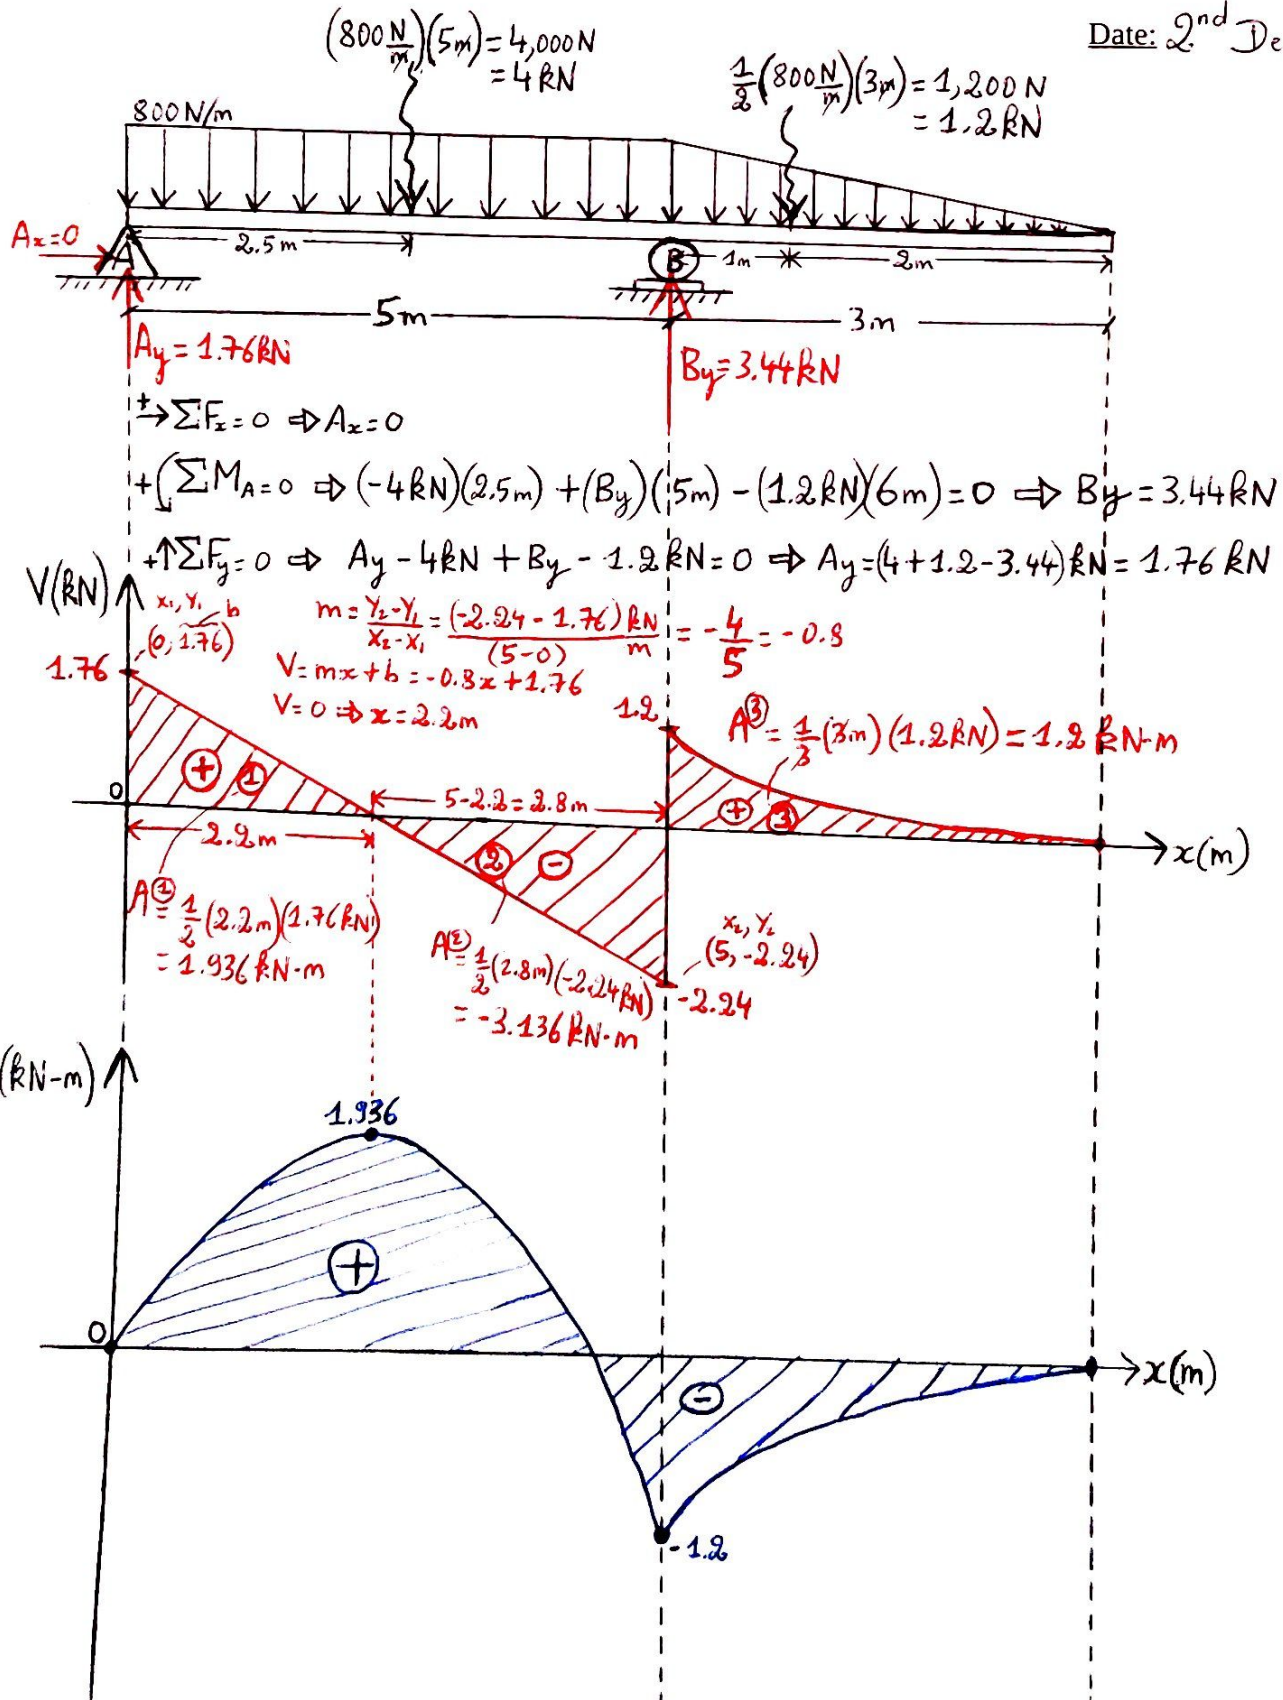 Date: 2nd De
(800 N/m)(5m) = 4,000N
= 4kN
1/2 (800 N/m)(3m) = 1,200N
= 1.2kN
800N/m
Ax=0
A
2.5m
B
1m
2m
5m
3m
Ay = 1.76kN
By = 3.44kN
+→ ΣFx = 0 ⇒ Ax = 0
+ ΣMA = 0 ⇒ (-4kN)(2.5m) + (By)(5m) - (1.2kN)(6m) = 0 ⇒ By = 3.44kN
+↑ΣFy = 0 ⇒ Ay - 4kN + By - 1.2kN = 0 ⇒ Ay = (4+1.2-3.44)kN = 1.76 kN
V(kN)
x₁, Y₁ b
(0, 1.76)
m = Y₂-Y₁/x₂-x₁ = (-2.24 - 1.76) kN/(5-0) m = -4/5 = -0.8
V = mx + b = -0.8x + 1.76
V=0 ⇒ x = 2.2m
1.76
1.2
A③ = 1/3 (3m)(1.2kN) = 1.2 kN-m
+ 1
0
5-2.2 = 2.8m
+ 3
2.2m
2 -
x(m)
A① = 1/2 (2.2m)(1.76kN)
= 1.936 kN-m
A② = 1/2 (2.8m)(-2.24kN)
= -3.136 kN-m
x₂, Y₂
(5, -2.24)
-2.24
(kN-m)
1.936
+
0
x(m)
-
-1.2